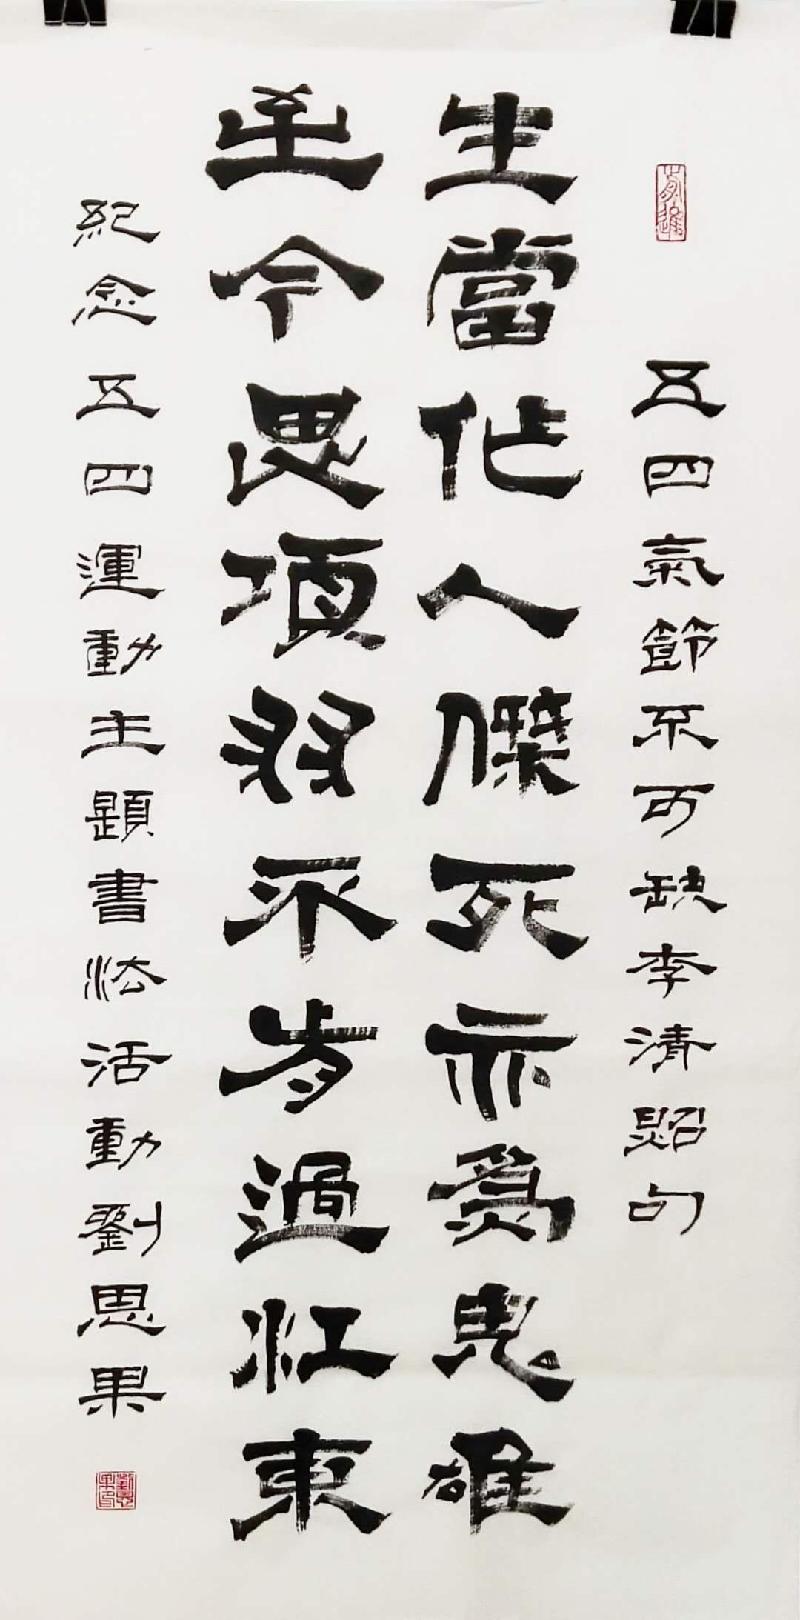 五四氣節不可缺李清照句
生當作人傑死亦為鬼雄
至今思項羽不肯過江東
紀念五四運動主題書法活動劉思果